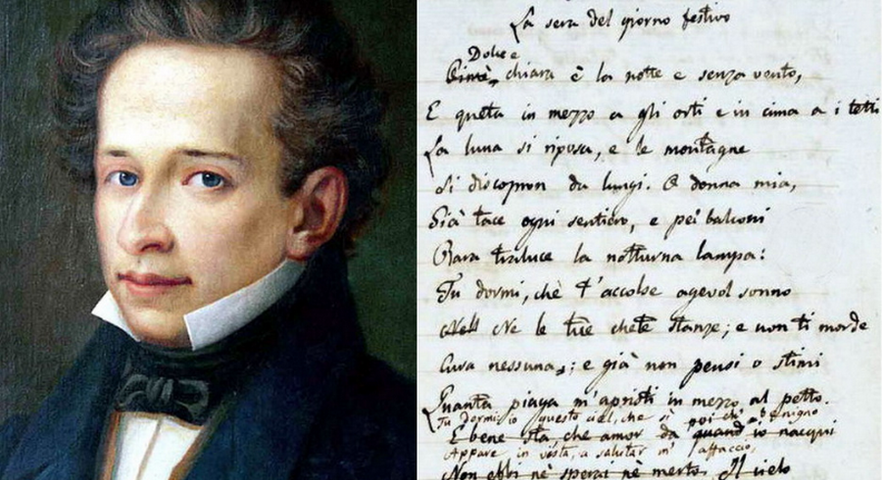 La sera del giorno festivo
Dolce e
Oimè, chiara è la notte e senza vento,
E queta in mezzo a gli orti e in cima a i tetti
La luna si riposa, e le montagne
Si discopron da lungi. O donna mia,
Già tace ogni sentiero, e pei balconi
Rara traluce la notturna lampa:
Tu dormi, chè t'accolse agevol sonno
Nell Ne le tue chete stanze; e non ti morde
Cura nessuna; e già non pensi o stimi
Quanta piaga m'apristi in mezzo al petto.
Tu dormi: io questo ciel, che sì benigno
poi ch'
E bene sta, che amor da quand io nacqui
Appare in vista, a salutar m'affaccio,
Non ebbi nè sperai nè merto. Il cielo